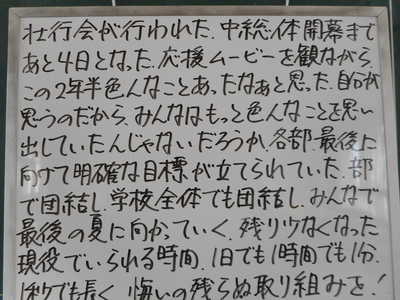 壮行会が行われた。中総体開幕まで
あと4日となった。応援ムービーを観ながら、
この2年半色んなことあったなぁと思った。自分が
思うのだから、みんなはもっと色んなことを思い
出していたんじゃないだろうか。各部、最後に
向けて明確な目標が立てられていた。部
で団結し、学校全体でも団結し、みんなで
最後の夏に向かっていく。残り少なくなった
現役でいられる時間。1日でも1時間でも1分、
1秒でも長く、悔いの残らぬ取り組みを!